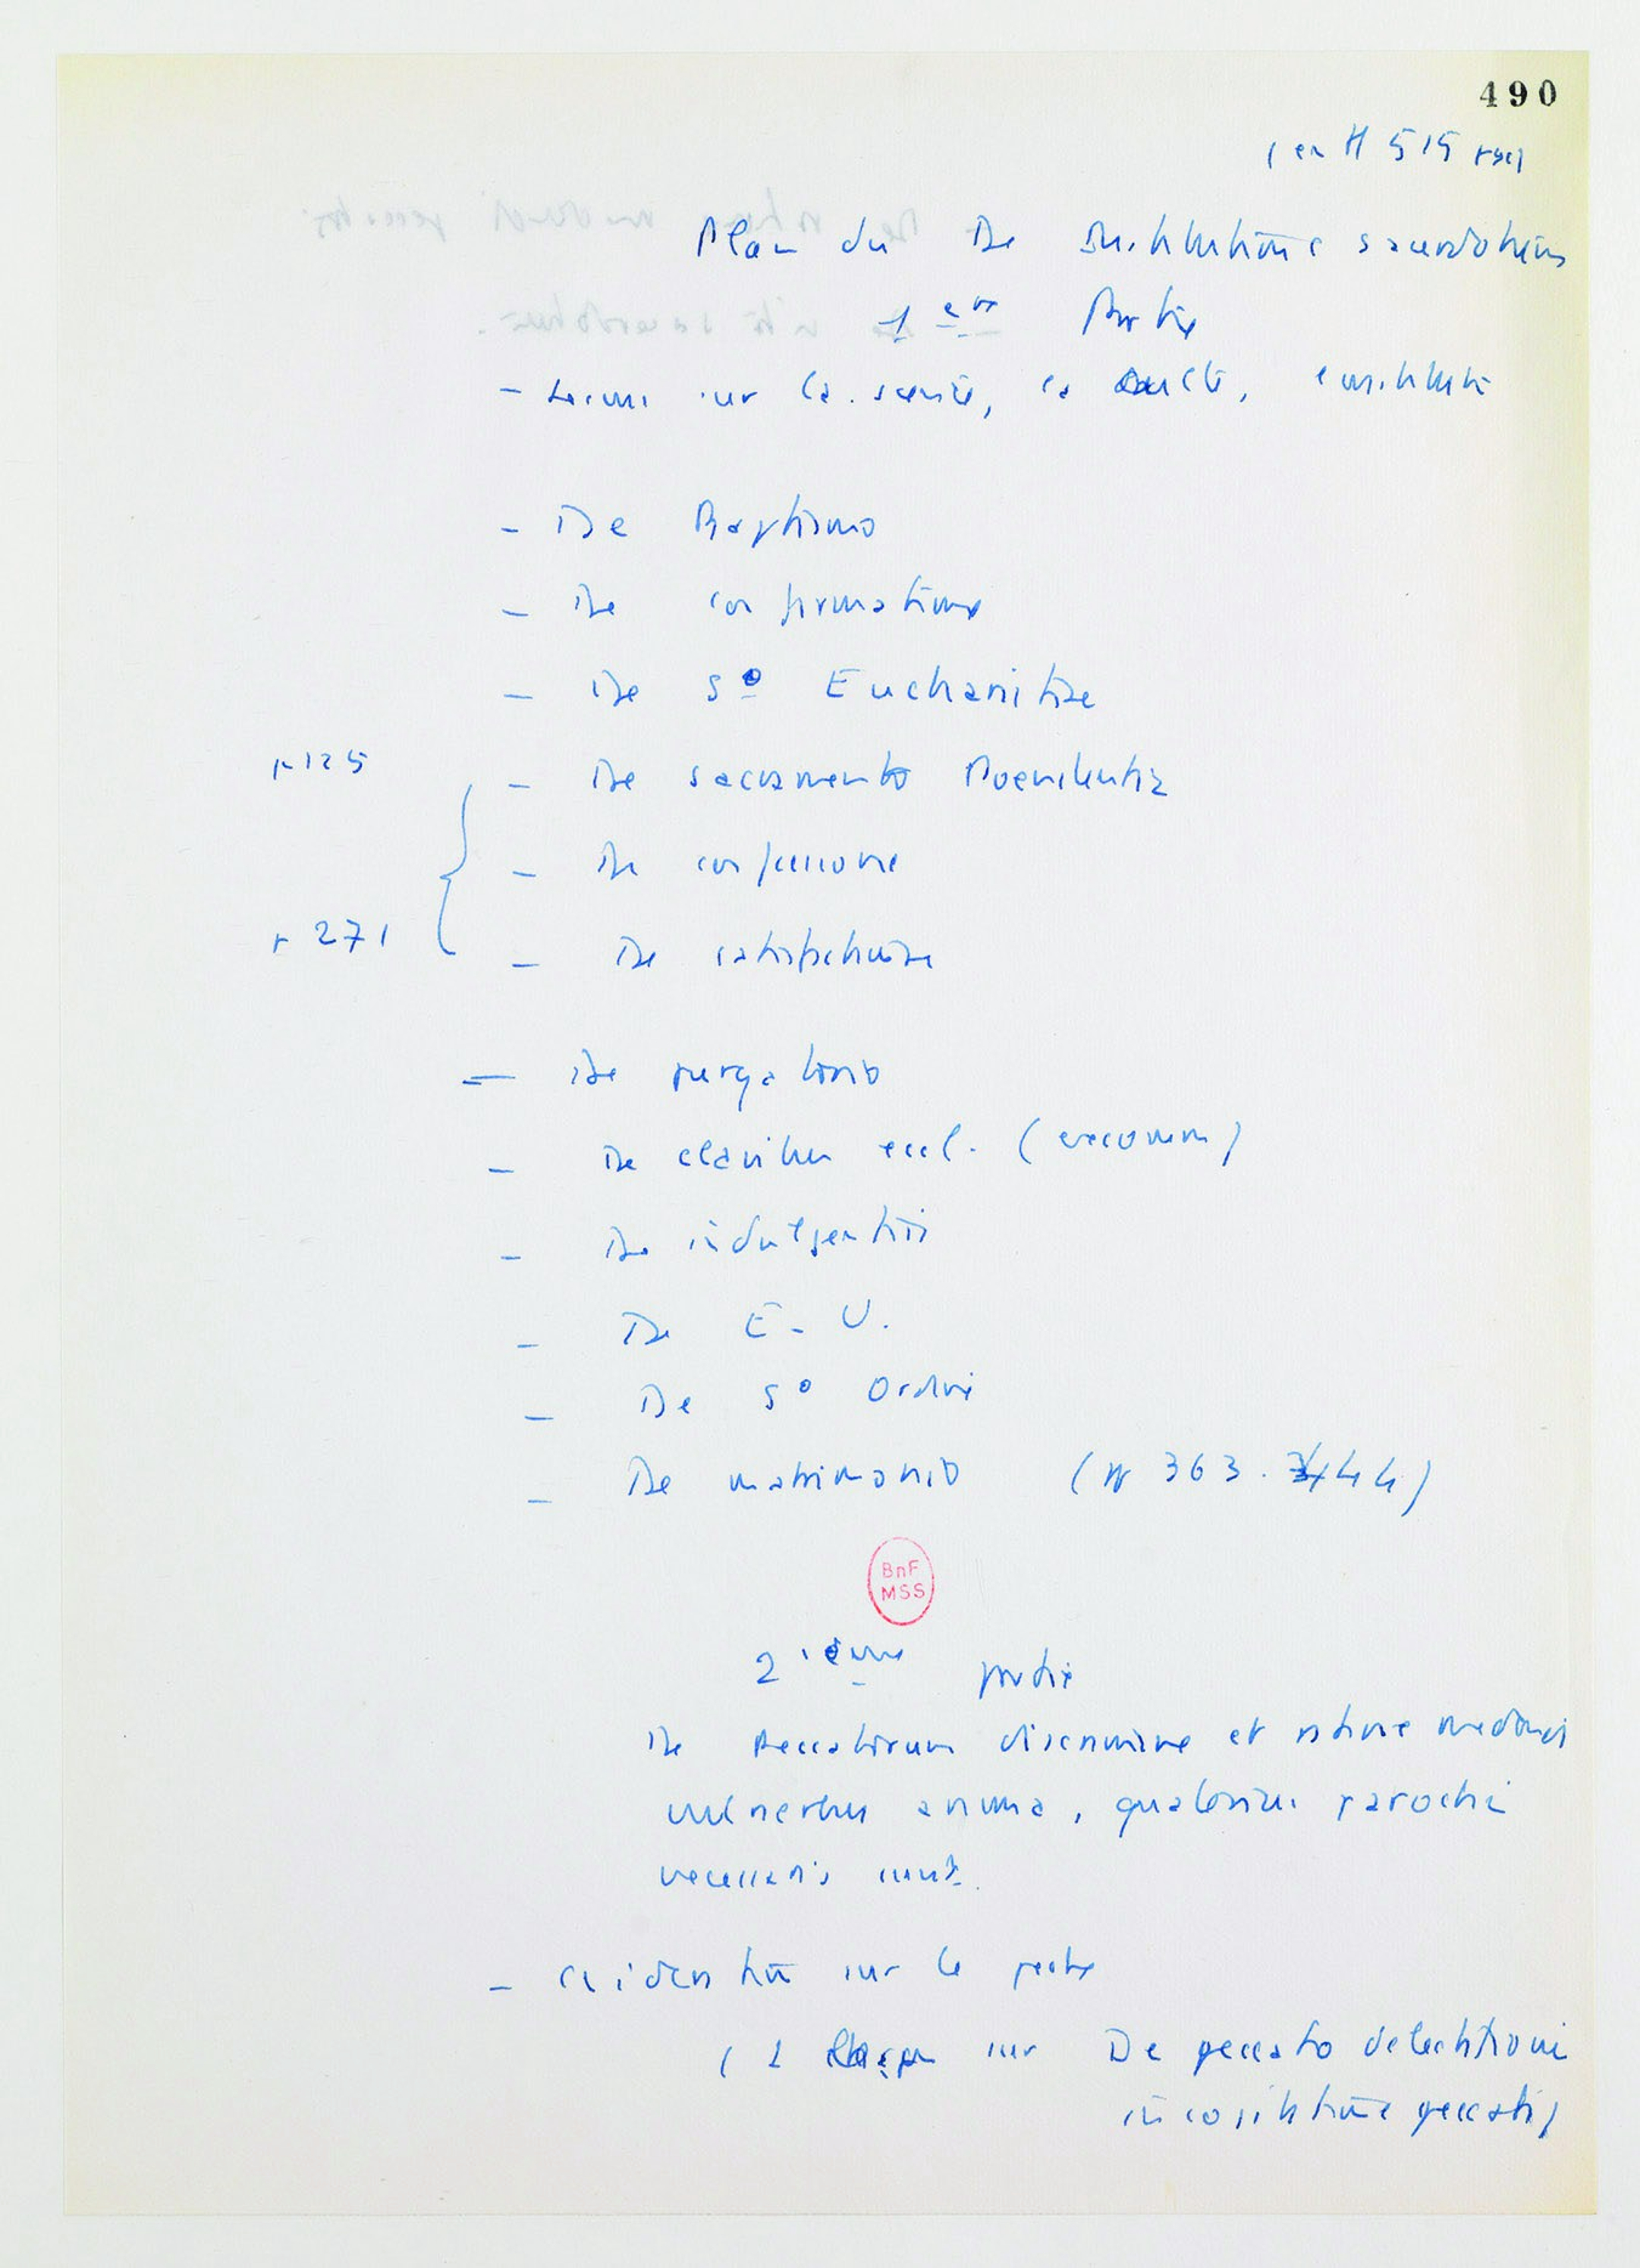 490
(en H 515 pages)
Plan du De Institutione sacerdotum
1ère Partie
- sur la science, la
- De Baptismo
- De confirmatione
- De So Eucharistiae
p 125
- De sacramento Poenitentia
- De confessione
p 271
- De satisfactione
- De purgatorio
- De clavibus eccl. (excomm)
- De indulgentiis
- De E-U.
- De So Ordini
- De matrimonio (pp 363.444)
BnF
MSS
2ième partie
De Peccatorum discrimine et ratione medendi
vulneribus anima, quatenus parochi
necessaris sunt.
- considération sur le péché
(1 sur De peccato delectatione
in cogitatione peccati)